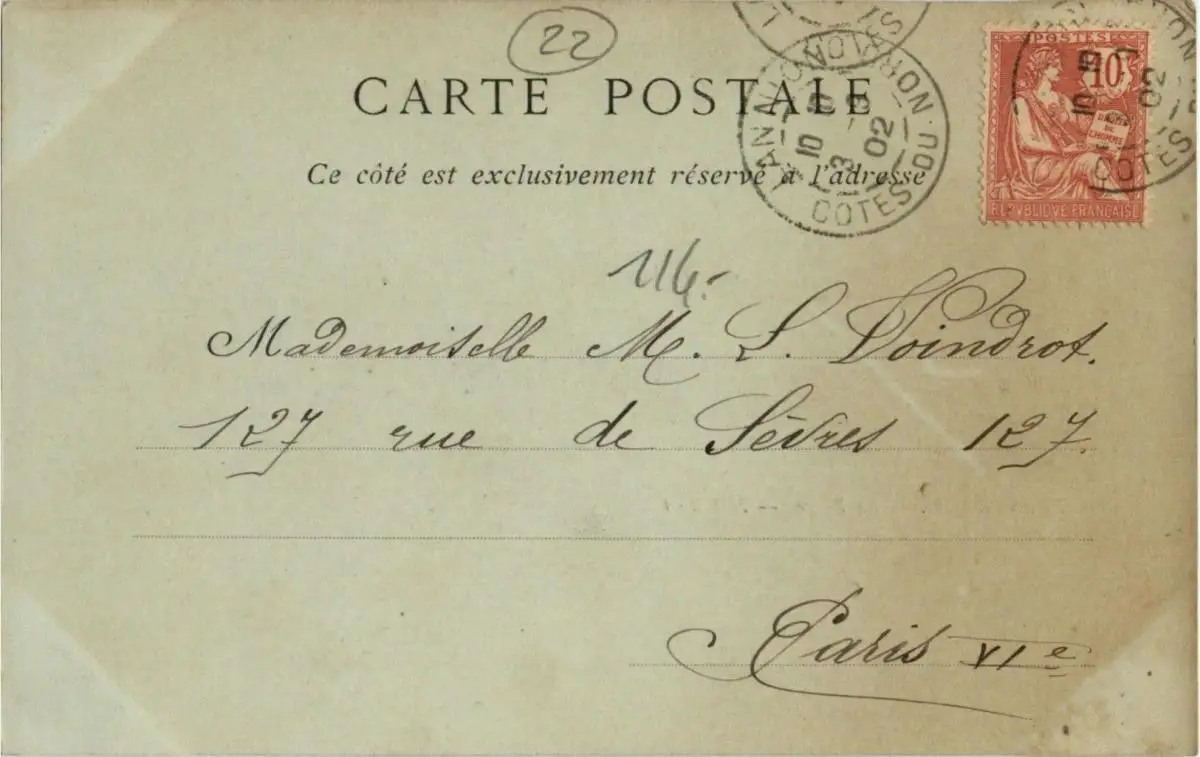 22
CARTE POSTALE
Ce côté est exclusivement réservé à l'adresse
LANNION
10
13
02
COTES-DU-NORD
POSTES
10
DROITS
DE
L'HOMME
REPVBLIQVE FRANÇAISE
116.-
Mademoiselle M. L. Voindrot.
127 rue de Sèvres 127.
Paris VIe